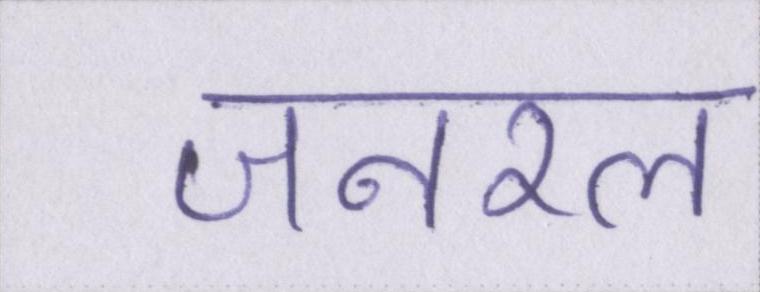 जनरल